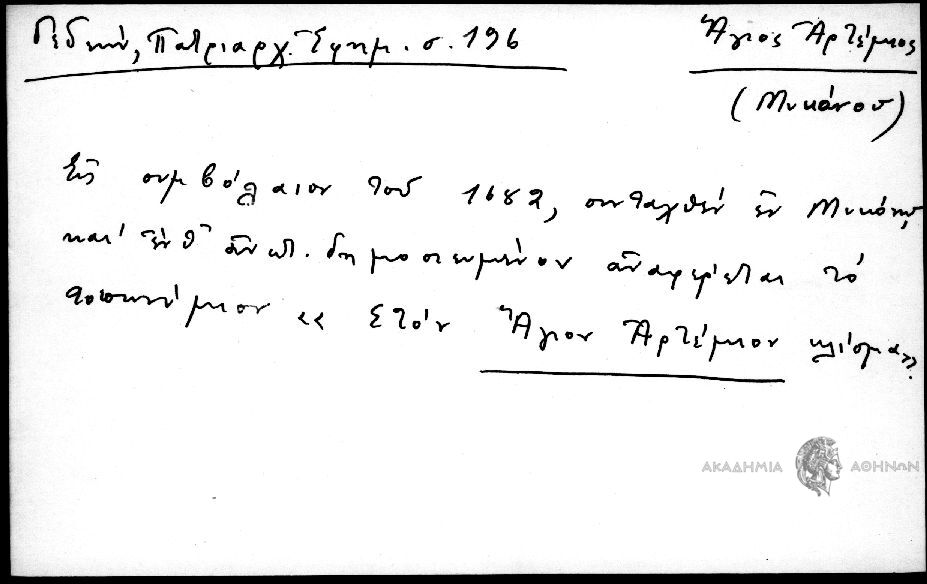 Γεδεών, Πατριαρχ. Ἐφημ. σ. 196
Ἅγιος Ἀρτέμιος
(Μυκόνου)
Εἰς συμβόλαιον τοῦ 1682, συνταχθέν ἐν Μυκόνῳ,
καί ἐνθ' ἀνωτ. δημοσιευμένον ἀναφέρεται τό
τοπωνύμιον «Στόν Ἅγιον Ἀρτέμιον κλίσμα».
ΑΚΑΔΗΜΙΑ ΑΘΗΝΩΝ